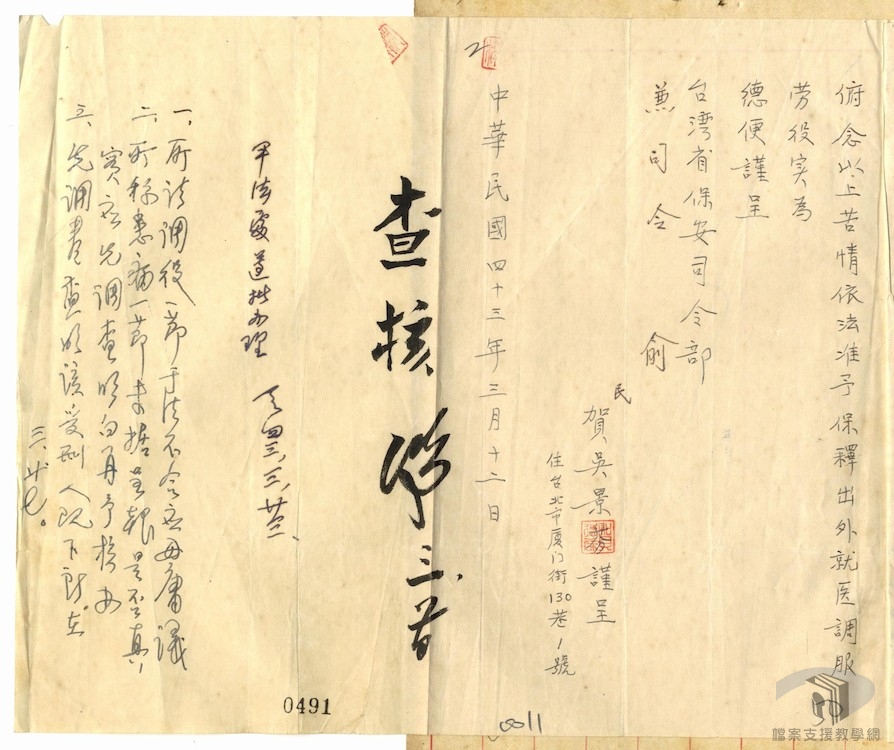 俯念以上苦情依法准予保釋出外就医調服
劳役实為
德便謹呈
台湾省保安司令部
兼司令 俞
民 賀吳景 謹呈
住台北市厦门街130巷1號
中華民國四十三年三月十二日
查核
軍法處遵批办理
四三、三、
一、所請調役一節于法不合应毋庸議
二、所称患病一節未据呈報是否真
實应先調查明白再予核办
三、先調卷查明該受刑人现下
三、廿七。
0491
0011
50
檔案支援教學網